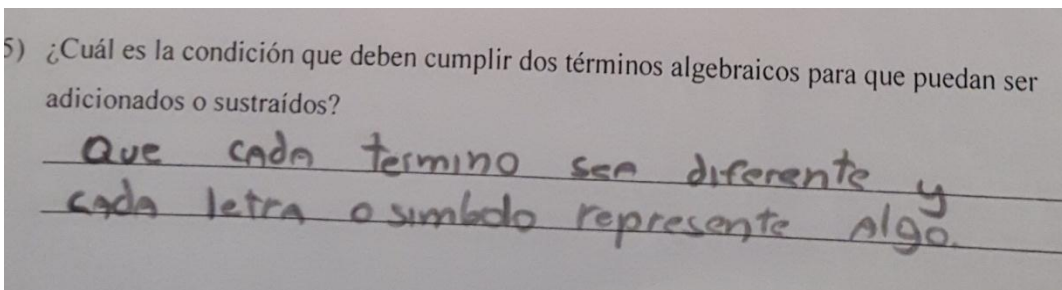 5) ¿Cuál es la condición que deben cumplir dos términos algebraicos para que puedan ser
adicionados o sustraídos?
Que cada termino sea diferente y
cada letra o simbolo represente Algo.